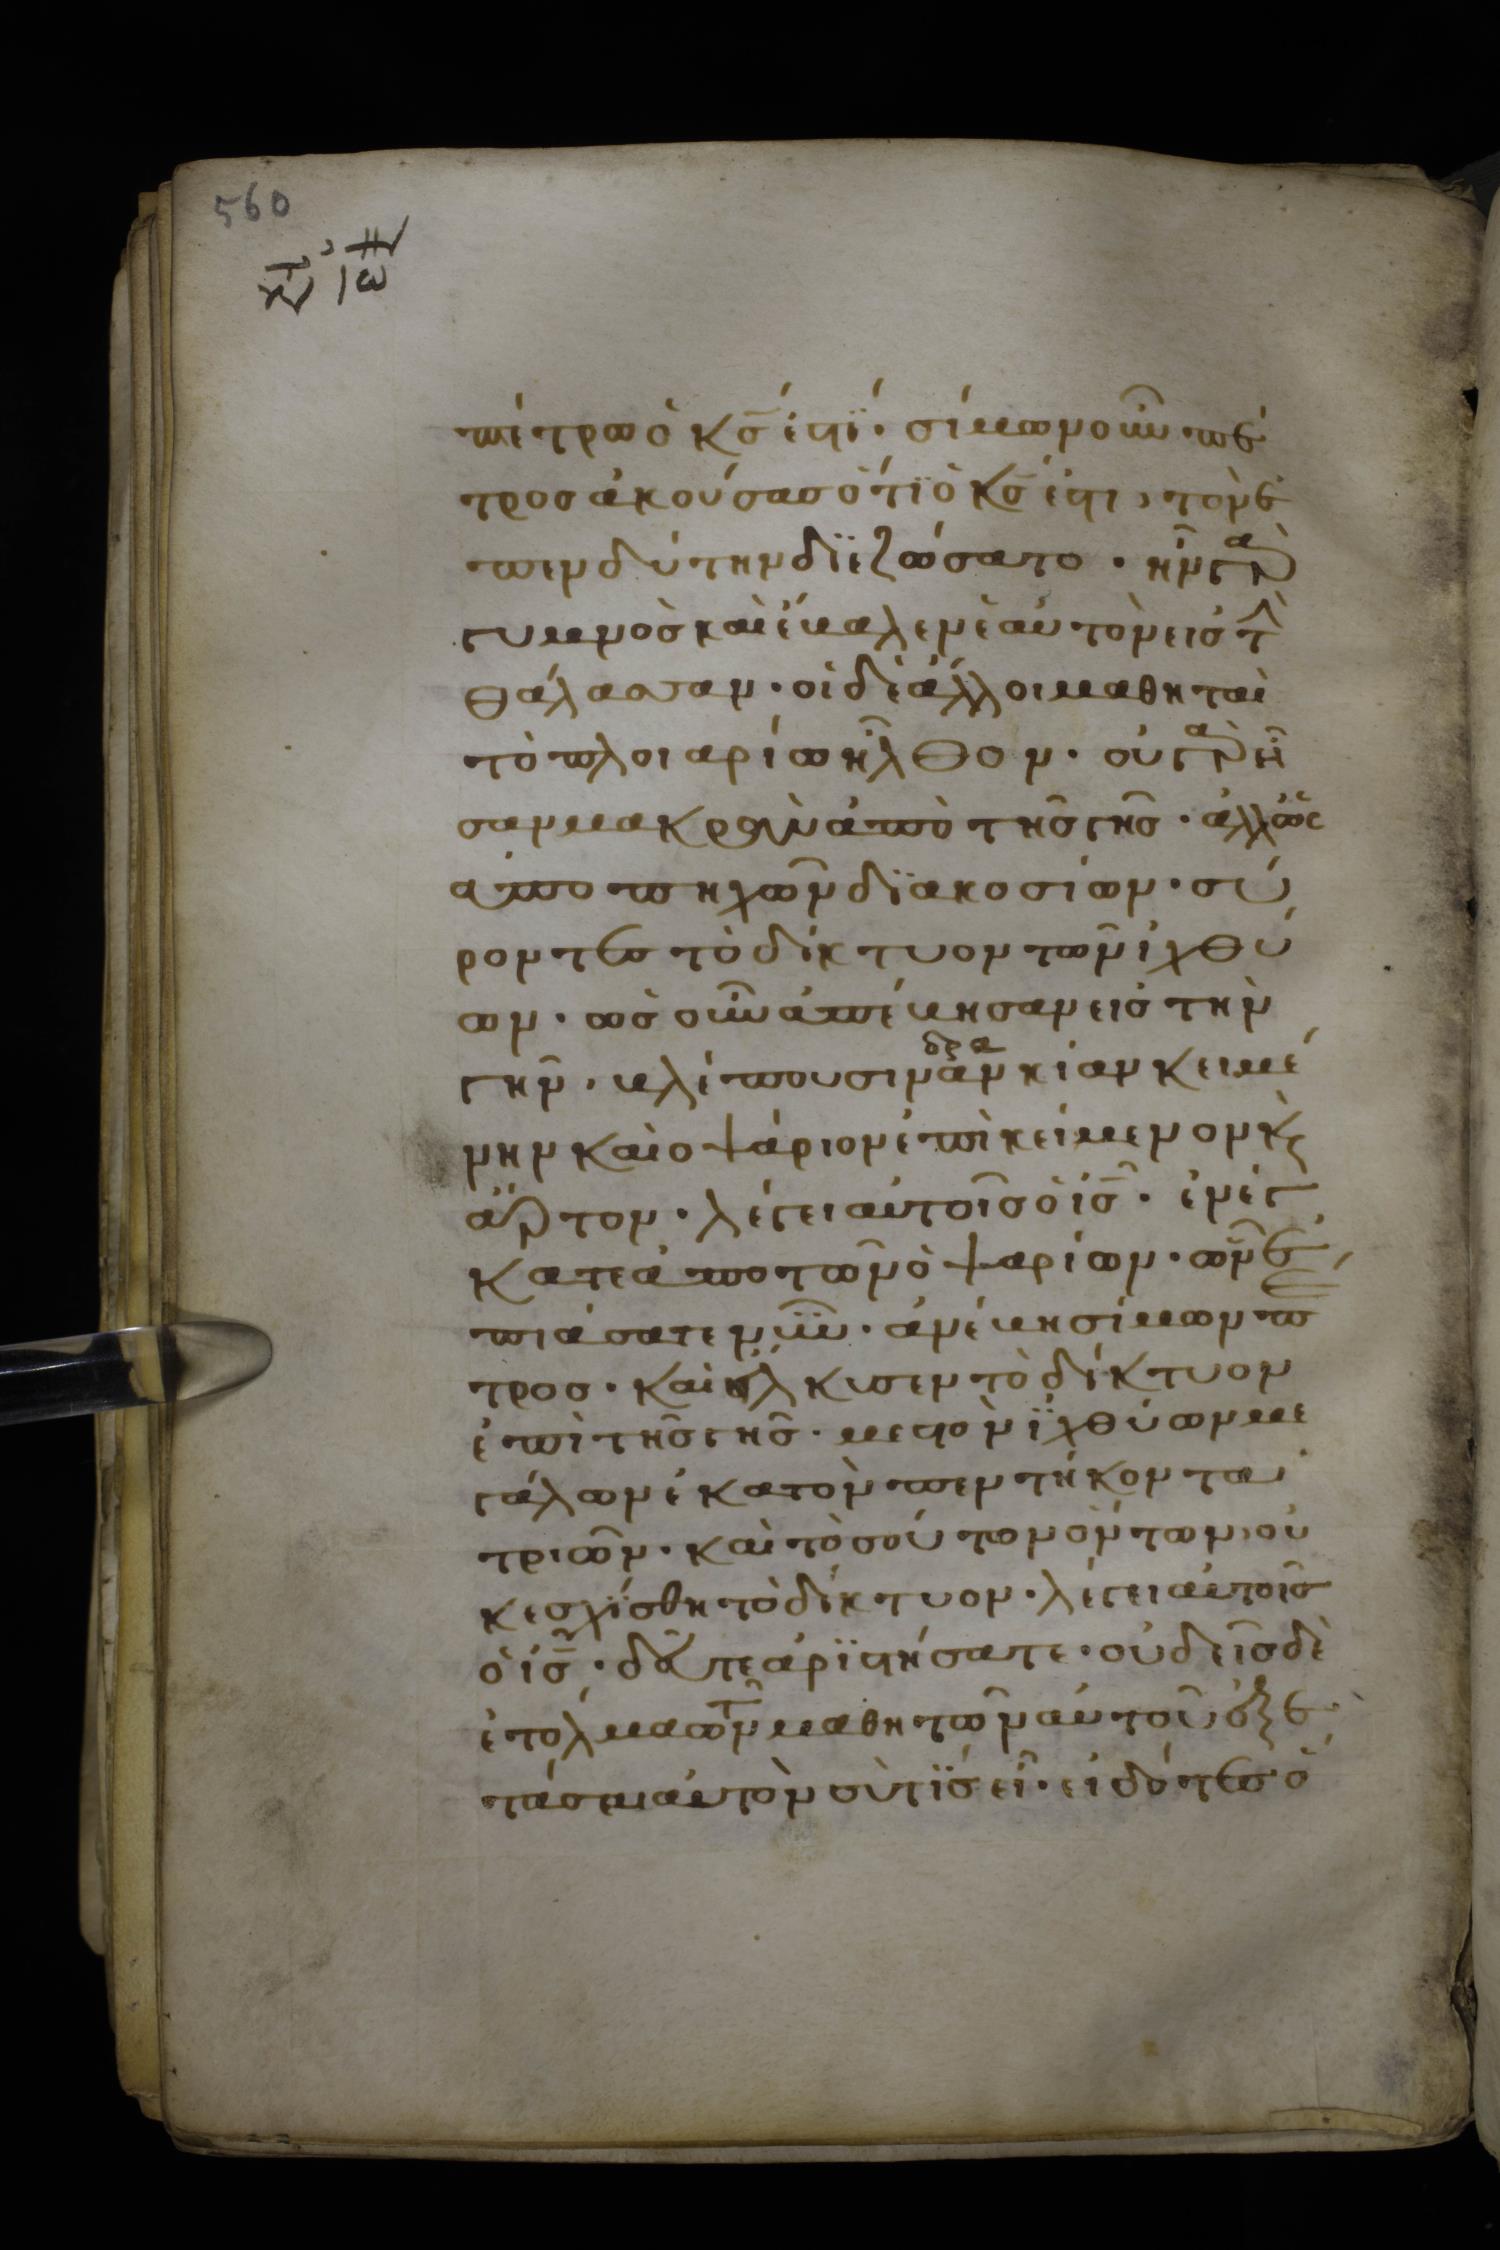 560
πέτρω ὁ κς̅ ἐστί· σίμων οὖν πέ
τρος ἀκούσας ὅτϊ ὁ κς̅ ἐστι, τὸν ἐ
πενδύτην δϊεζώσατο· ἦν γὰρ
γυμνὸς καὶ ἔβαλεν ἑαυτὸν εἰς τὴν
θάλασσαν· οἱ δὲ ἄλλοι μαθηταὶ
τὸ πλοιαρίω ἦλθον· οὐ γὰρ ἦ
σαν μακρὰν ἀπὸ τῆς γῆς· ἀλλ ὡς
ἀπο πηχῶν δϊακοσίων· σύ
ροντες τὸ δίκτυον τῶν ἰχθύ
ων· ὡς οὖν ἀπέβησαν εἰς τὴν
γῆν· βλέπουσιν ἀνθρακίαν κειμέ
νην καὶ οψάριον ἐπικείμενον κὶ
ἄρτον· λέγει αὐτοῖς ὁ ις̅· ἐνέγ
κατε ἀπο τῶν ὀψαρίων· ὧν ἐ
πιάσατε νῦν· ἀνέβη σίμων πέ
τρος· καὶ ἥλκυσεν τὸ δίκτυον
ἐπὶ τῆς γῆς· μεστὸν ἰχθύων με
γάλων ἑκατὸν πεντήκοντα
τριῶν· καὶ τὸσούτων ὄντων, οὐ
κ εσχίσθη τὸ δίκτυον· λέγει αὐτοῖς
ὁ ις̅· δεῦτε ἀρϊστήσατε· οὐδεὶς δὲ
ἐτόλμα τῶν μαθητῶν αὐτοῦ ἐξε
τάσαι αὐτὸν σὺ τϊς εἶ· εἰδότες ὅ